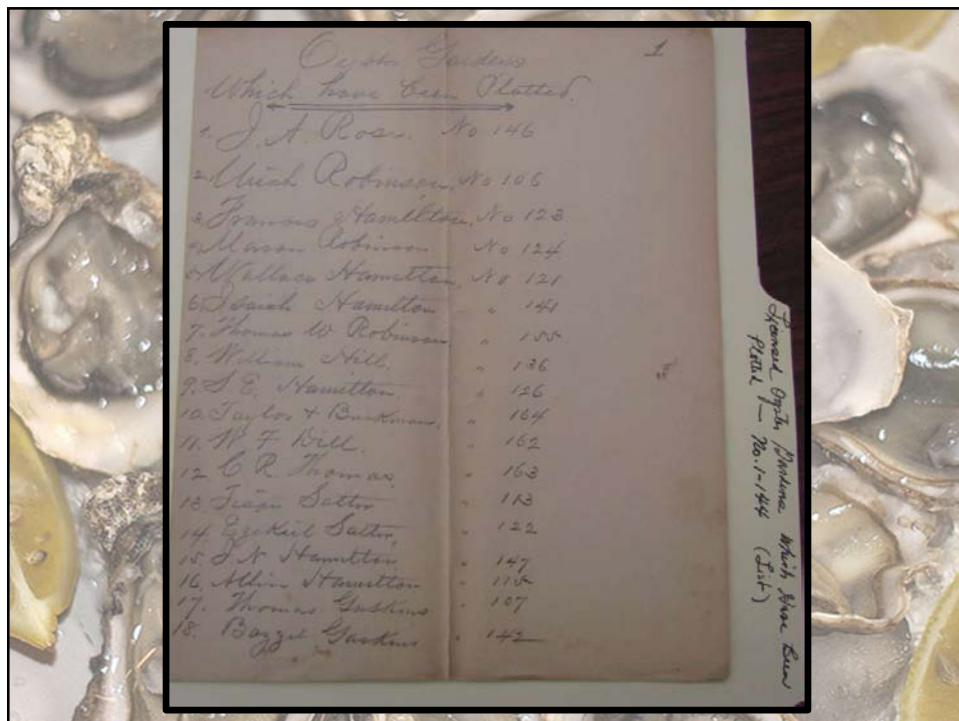 1
Oyster Gardens
Which have been Plotted.
1. J. A. Rose. No 146
2. Uriah Robinson, No 106
3. Francis Hamilton, No 123
4. Mason Robinson No 124
5. Wallace Hamilton, No 121
6. Isaiah Hamilton " 141
7. Thomas W Robinson, " 155
8. William Hill. " 136
9. S. E. Hamilton " 126
10. Taylor + " 164
11. W. F. Dill. " 162
12 C. R. Thomas " 163
13 Salter " 113
14. Ezekiel Salter, " 122
15 J. N. Hamilton " 147
16. Alvin Hamilton " 115
17. Thomas Gaskins " 107
18. Bazzel Gaskins " 142
Licensed Oyster Gardens which Have Been
Plotted - No. 1-144 (List)